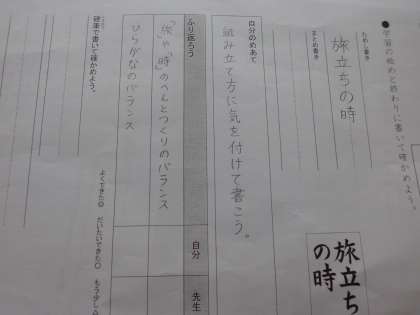 ●学習の始めと終わりに書いて確かめよう。
ためし書き
旅立ちの時
まとめ書き
旅立ち
の時
自分のめあて
組み立て方に気を付けて書こう。
ふり返ろう
自分
先生
「旅」や「時」のへんとつくりのバランス
ひらがなのバランス
よくできた◎ だいたいできた○ もう少し△
硬筆で書いて確かめよう。